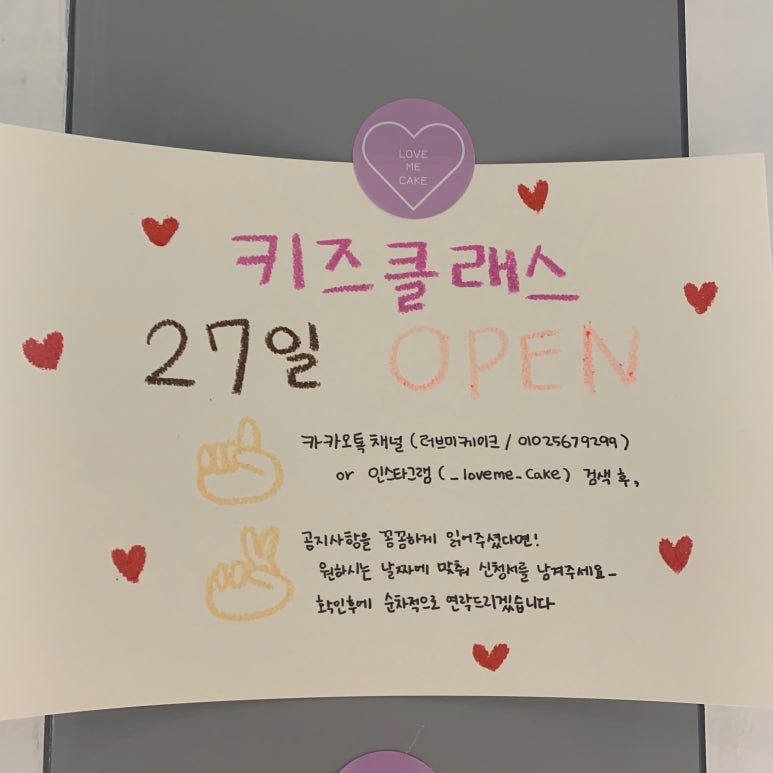 LOVE
ME
CAKE
키즈클래스
27일 OPEN
카카오톡 채널 (러브미케이크 / 01025679299)
or 인스타그램 (_loveme_cake) 검색 후,
공지사항을 꼼꼼하게 읽어주셨다면!
원하시는 날짜에 맞춰 신청서를 남겨주세요_
확인후에 순차적으로 연락드리겠습니다